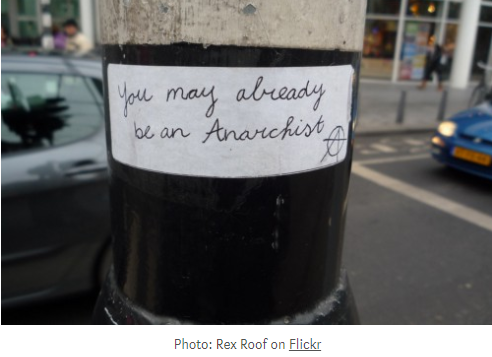 You may already
be an Anarchist
Photo: Rex Roof on Flickr